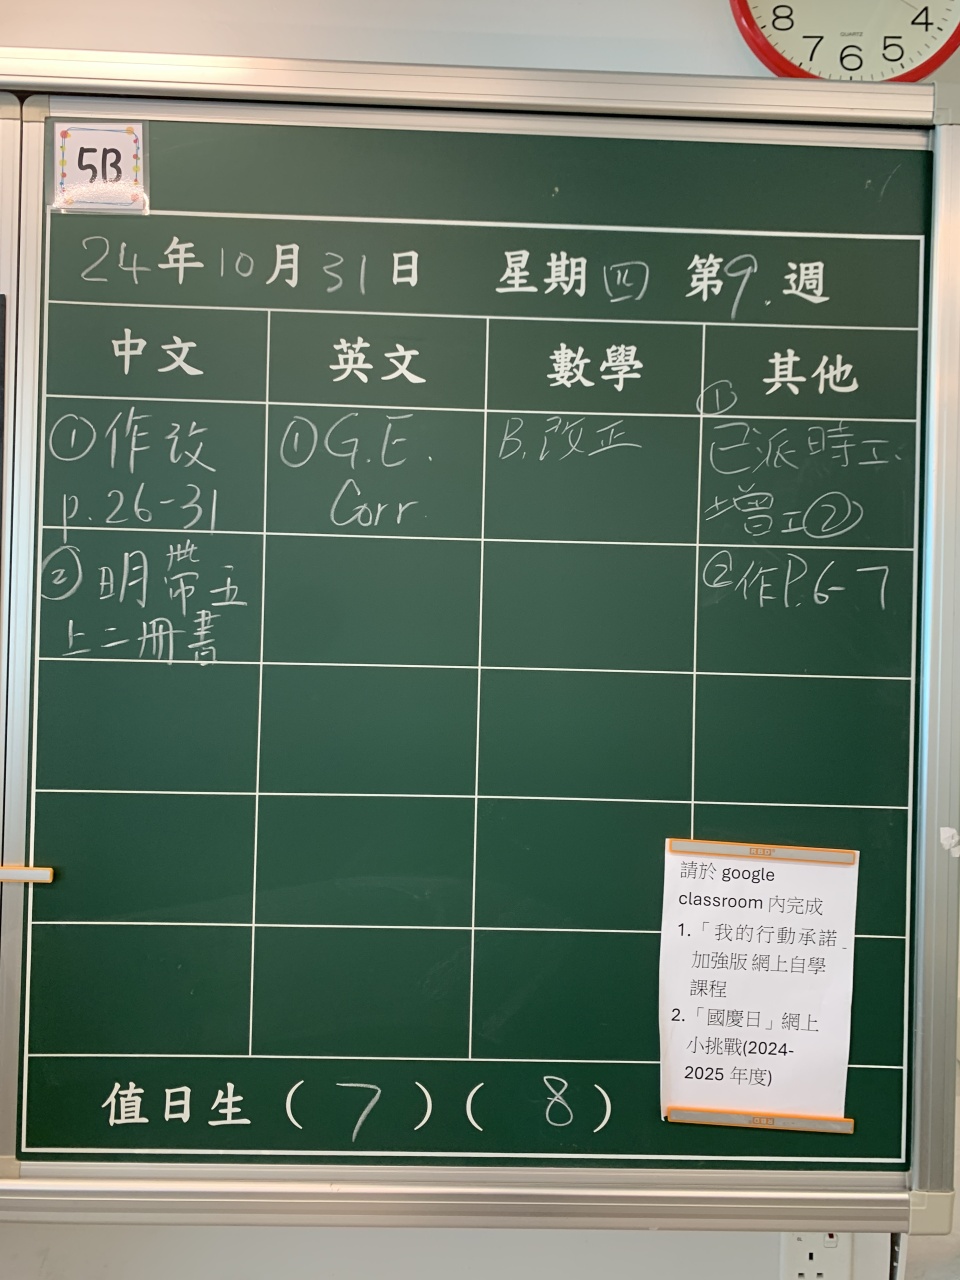 8 7 6 5 4
QUARTZ
5B
24年10月31日 星期四 第9.週
中文 英文 數學 其他
①作改
p.26-31
②明帶五
上二冊書
①G.E.
Corr.
B.改正
①
已派時工、
增工②
②作P.6-7
請於 google
classroom 內完成
1.「我的行動承諾」
加強版 網上自學
課程
2.「國慶日」網上
小挑戰(2024-
2025 年度)
值日生(7)(8)